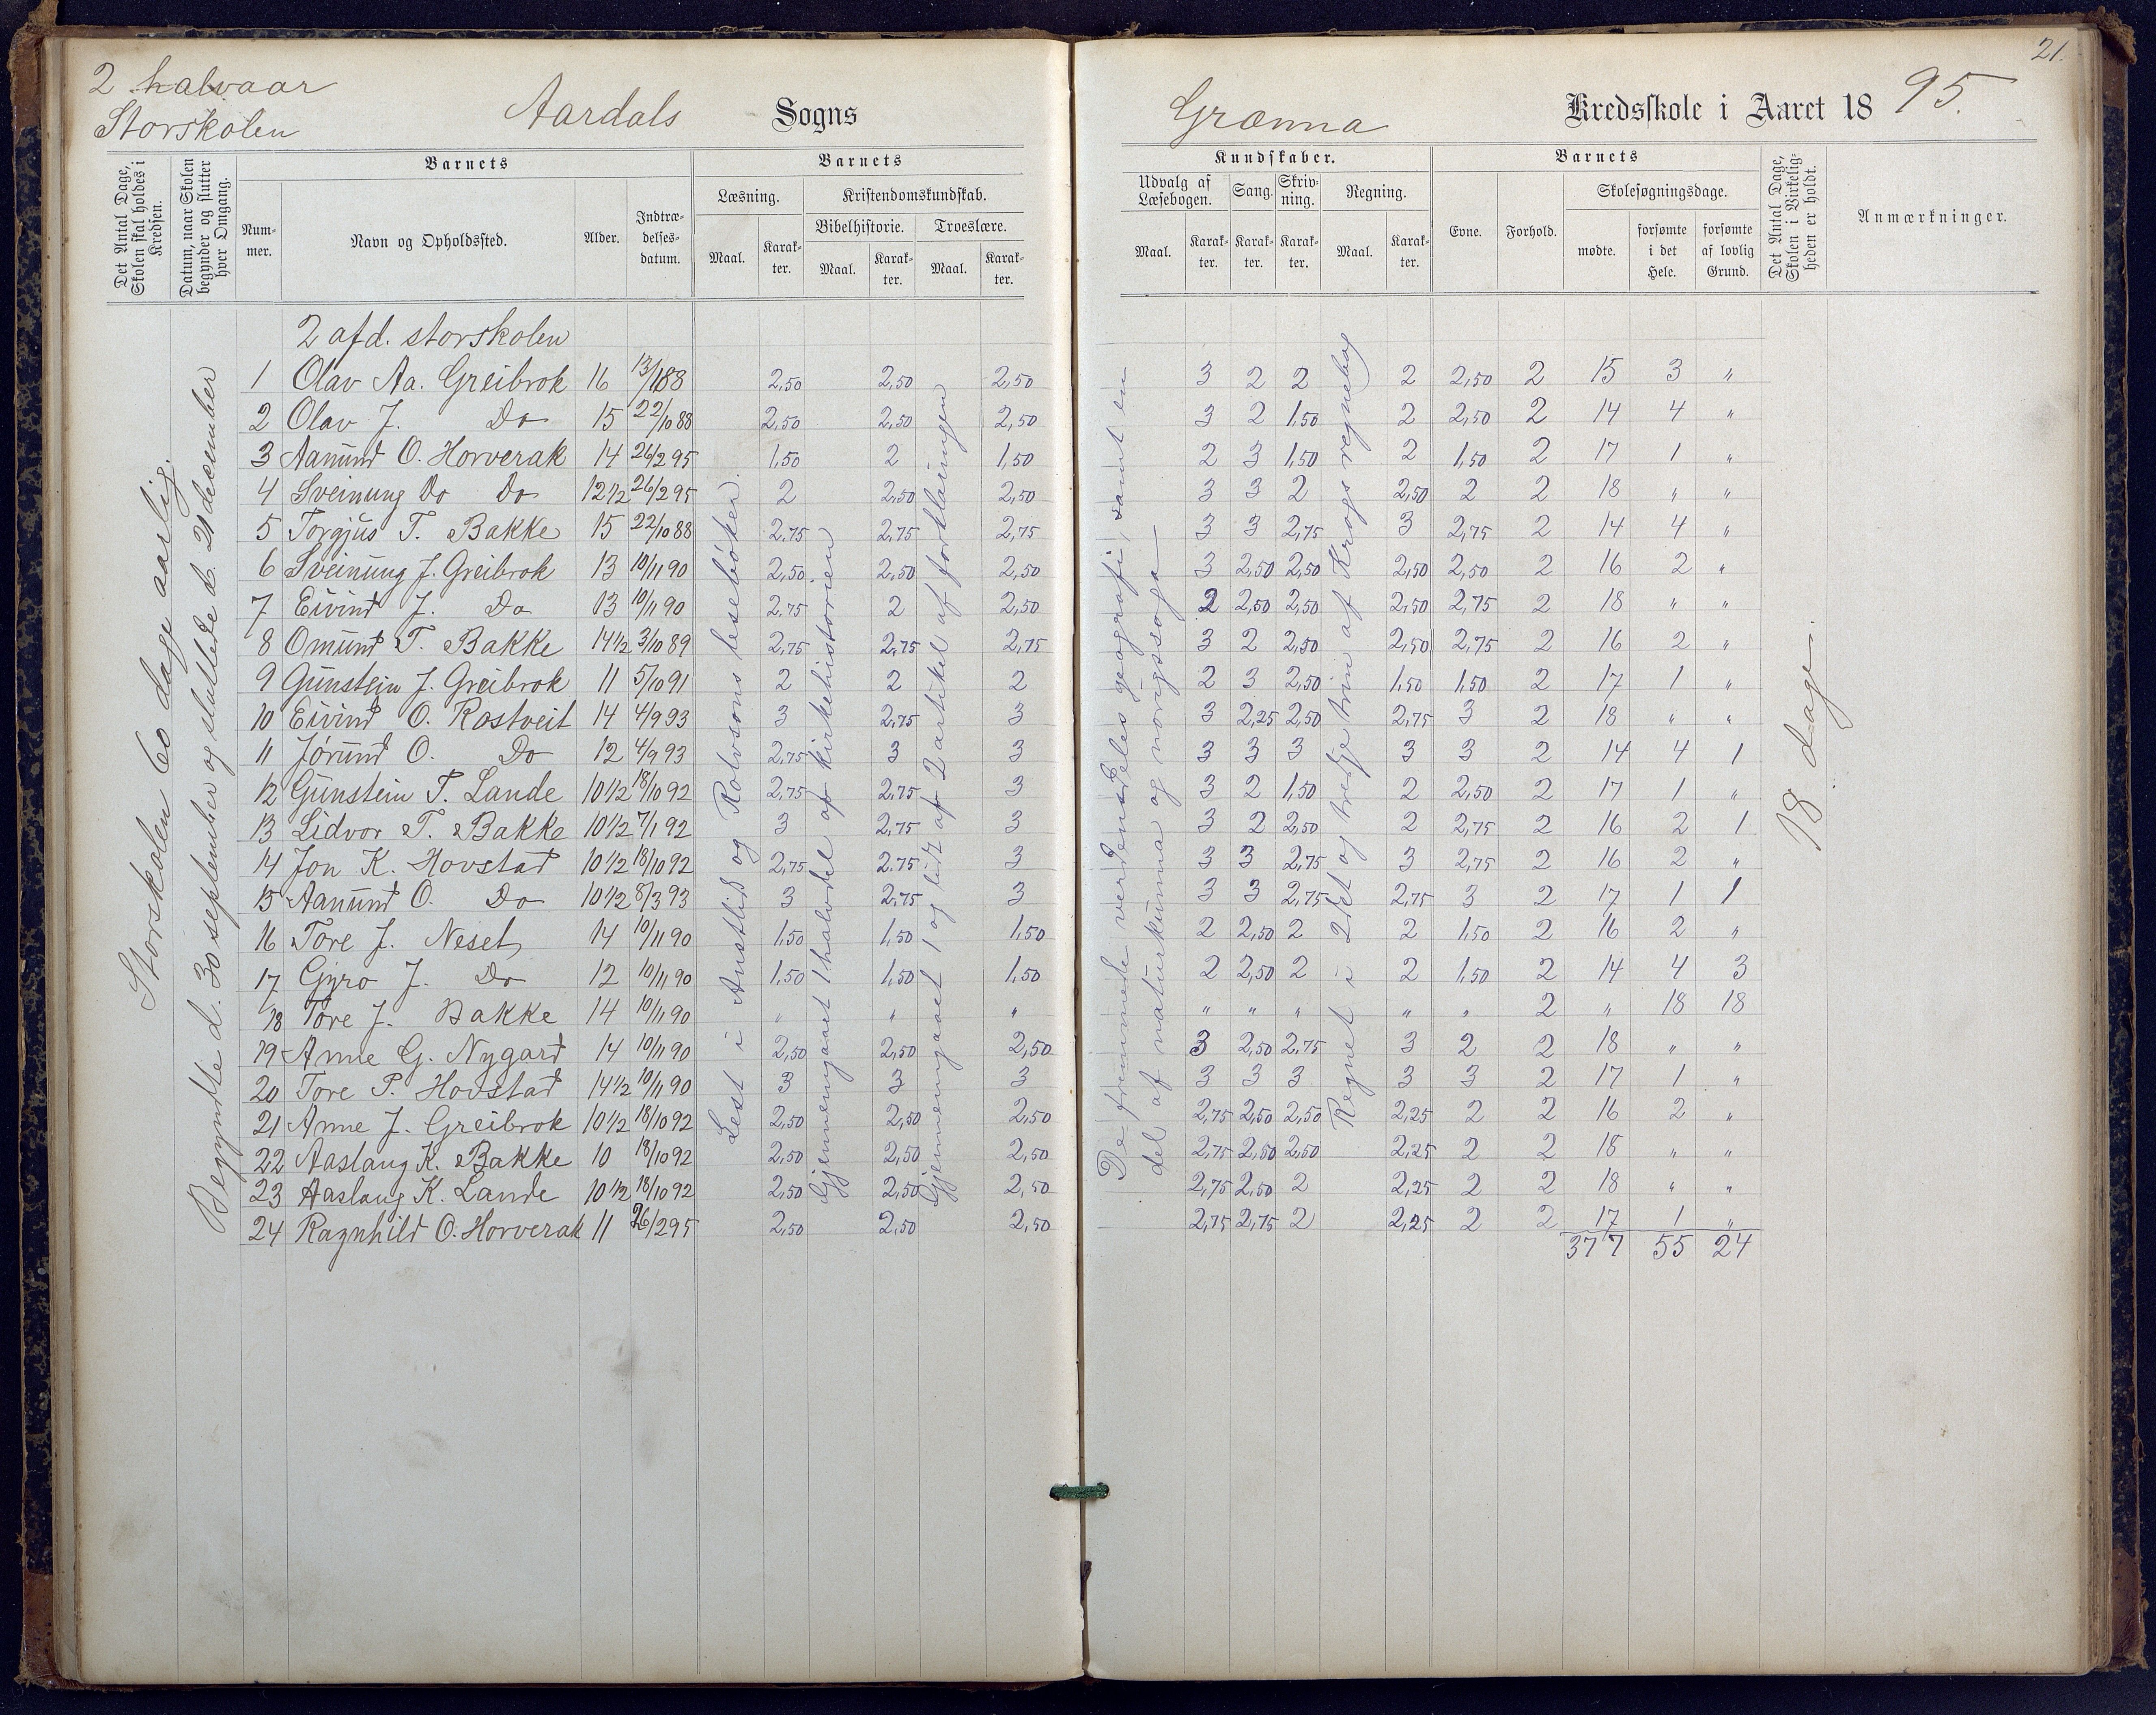 21.
2 halvaar
Storskolen
Aardals Sogns Grænna Kredsskole i Aaret 1895.
Det Antal Dage, Skolen skal holdes i Kredsen.
Datum, naar Skolen begynder og slutter hver Omgang.
Barnets
Num-mer.
Navn og Opholdssted.
Alder.
Indtræ-delses-datum.
Barnets
Læsning.
Maal. Karak-ter.
Kristendomskundskab.
Bibelhistorie.
Maal. Karak-ter.
Troeslære.
Maal. Karak-ter.
Kundskaber.
Udvalg af Læsebogen.
Maal. Karak-ter.
Sang.
Karak-ter.
Skriv-ning.
Karak-ter.
Regning.
Maal. Karak-ter.
Barnets
Evne.
Forhold.
Skolesøgningsdage.
mødte.
forsømte i det Hele.
forsømte af lovlig Grund.
Det Antal Dage, Skolen i Virkelig-heden er holdt.
Anmærkninger.
Storskolen 60 dage aarlig.
Begyndte d. 30 september og sluttede d. 21 december
2 afd. storskolen
1 Olav Aa. Greibrok 16 13/188 2,50 2,50 2,50 3 2 2 2 2,50 2 15 3 "
2 Olav J. Do 15 22/1088 2,50 2,50 2,50 3 2 1,50 2 2,50 2 14 4 "
3 Aanund O. Horverak 14 26/295 1,50 2 1,50 2 3 1,50 2 1,50 2 17 1 "
4 Sveinung Do Do 12 1/2 26/295 2 2,50 2,50 3 3 2 2,50 2 2 18 " "
5 Torgjus T. Bakke 15 22/1088 2,75 2,75 2,75 3 3 2,75 3 2,75 2 14 4 "
6 Sveinung J. Greibrok 13 10/1190 2,50 2,50 2,50 3 2,50 2,50 2,50 2,50 2 16 2 "
7 Eivind J. Do 13 10/1190 2,75 2 2,50 2 2,50 2,50 2,50 2,75 2 18 " "
8 Omund T. Bakke 14 1/2 3/1089 2,75 2,75 2,75 3 2 2,50 2,50 2,75 2 16 2 "
9 Gunstein J. Greibrok 11 5/1091 2 2 2 2 3 2,50 1,50 1,50 2 17 1 "
10 Eivind O. Rostveit 14 4/993 3 2,75 3 3 2,25 2,50 2,75 3 2 18 " "
11 Jørund O. Do 12 4/993 2,75 3 3 3 3 3 3 3 2 14 4 1
12 Gunstein T. Lande 10 1/2 18/1092 2,75 2,75 3 3 2 1,50 2 2,50 2 17 1 "
13 Lidvor T. Bakke 10 1/2 7/192 3 2,75 3 3 2 2,50 2 2,75 2 16 2 1
14 Jon K. Hovstad 10 1/2 18/1092 2,75 2,75 3 3 3 2,75 3 2,75 2 16 2 "
15 Aanund O. Do 10 1/2 8/393 3 2,75 3 3 3 2,75 2,75 3 2 17 1 1
16 Tore J. Neset 14 10/1190 1,50 1,50 1,50 2 2,50 2 2 1,50 2 16 2 "
17 Gyro J. Do 12 10/1190 1,50 1,50 1,50 2 2,50 2 2 1,50 2 14 4 3
18 Tore J. Bakke 14 10/1190 " " " " " " " " 2 " 18 18
19 Anne G. Nygard 14 10/1190 2,50 2,50 2,50 3 2,50 2,75 3 2 2 18 " "
20 Tore P. Hovstad 14 1/2 10/1190 3 3 3 3 3 3 3 3 2 17 1 "
21 Anne J. Greibrok 10 1/2 18/1092 2,50 2,50 2,50 2,75 2,50 2,50 2,25 2 2 16 2 "
22 Aaslaug K. Bakke 10 18/1092 2,50 2,50 2,50 2,75 2,50 2,50 2,25 2 2 18 " "
23 Aaslaug K. Lande 10 1/2 18/1092 2,50 2,50 2,50 2,75 2,50 2 2,25 2 2 18 " "
24 Ragnhild O. Horverak 11 26/295 2,50 2,50 2,50 2,75 2,75 2 2,25 2 2 17 1 "
377 55 24
Lest i Austlid og Rolvsons lesebøker.
Gjennemgaaet 1 halvdel af kirkehistorien
Gjennemgaaet 1 og lidt af 2 artikel af forklaringen
De fremmede verdensdeles geografi, samt en
del af naturkunna og norigssoga
Regnet i 2det og tredje trin af Krogs regnebog
18 dage.